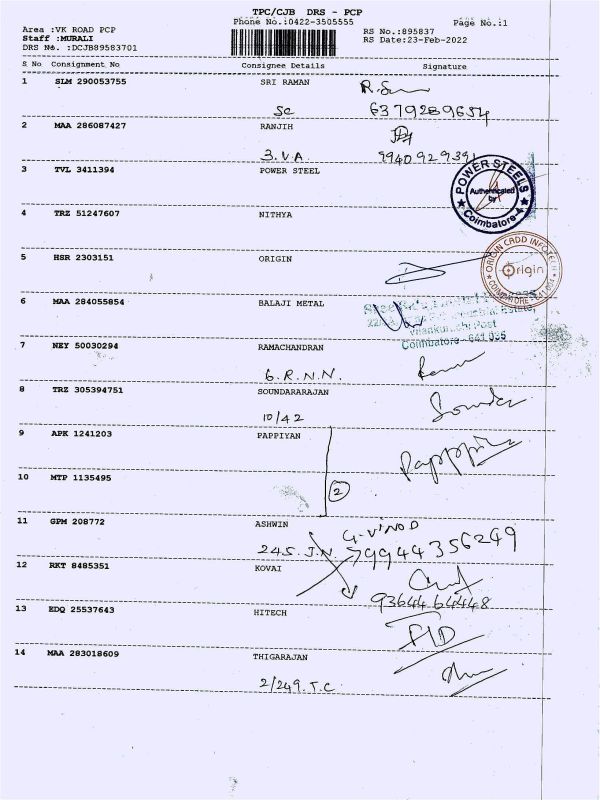 TPC/CJB DRS - PCP
Phone No.:0422-3505555
Page No.:1
Area :VK ROAD PCP
Staff :MURALI
DRS No. :DCJB89583701
RS No.:895837
RS Date:23-Feb-2022
S No Consignment No Consignee Details Signature
1 SLM 290053755 SRI RAMAN
SC 6379289654
2 MAA 286087427 RANJIH
3.V.A. 9940929391
3 TVL 3411394 POWER STEEL
POWER STEELS
Authenticated
by
Coimbatore
4 TRZ 51247607 NITHYA
5 HSR 2303151 ORIGIN
ORIGIN CADD INFOTECH
Origin
COIMBATORE
6 MAA 284055854 BALAJI METAL
Post
Coimbatore - 641 035
7 NEY 50030294 RAMACHANDRAN
6.R.N.N.
8 TRZ 305394751 SOUNDARARAJAN
10/42 Sounder
9 APK 1241203 PAPPIYAN
10 MTP 1135495
2
11 GPM 208772 ASHWIN
G.VINOD
245.J.N. 79944356249
12 RKT 8485351 KOVAI
9364464448
13 EDQ 25537643 HITECH
14 MAA 283018609 THIGARAJAN
2/249.T.C